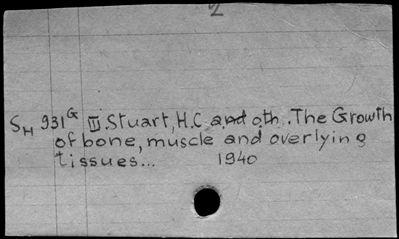 2
S_H 931^G III. Stuart, H.C. and oth. The Growth
of bone, muscle and overlying
tissues... 1940